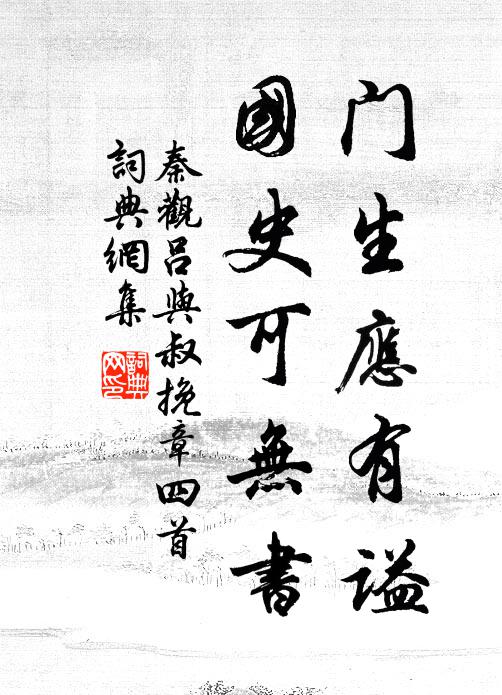 門生應有謚
國史可無書
秦觀呂與叔挽章四首
詞典網集
詞典
网印